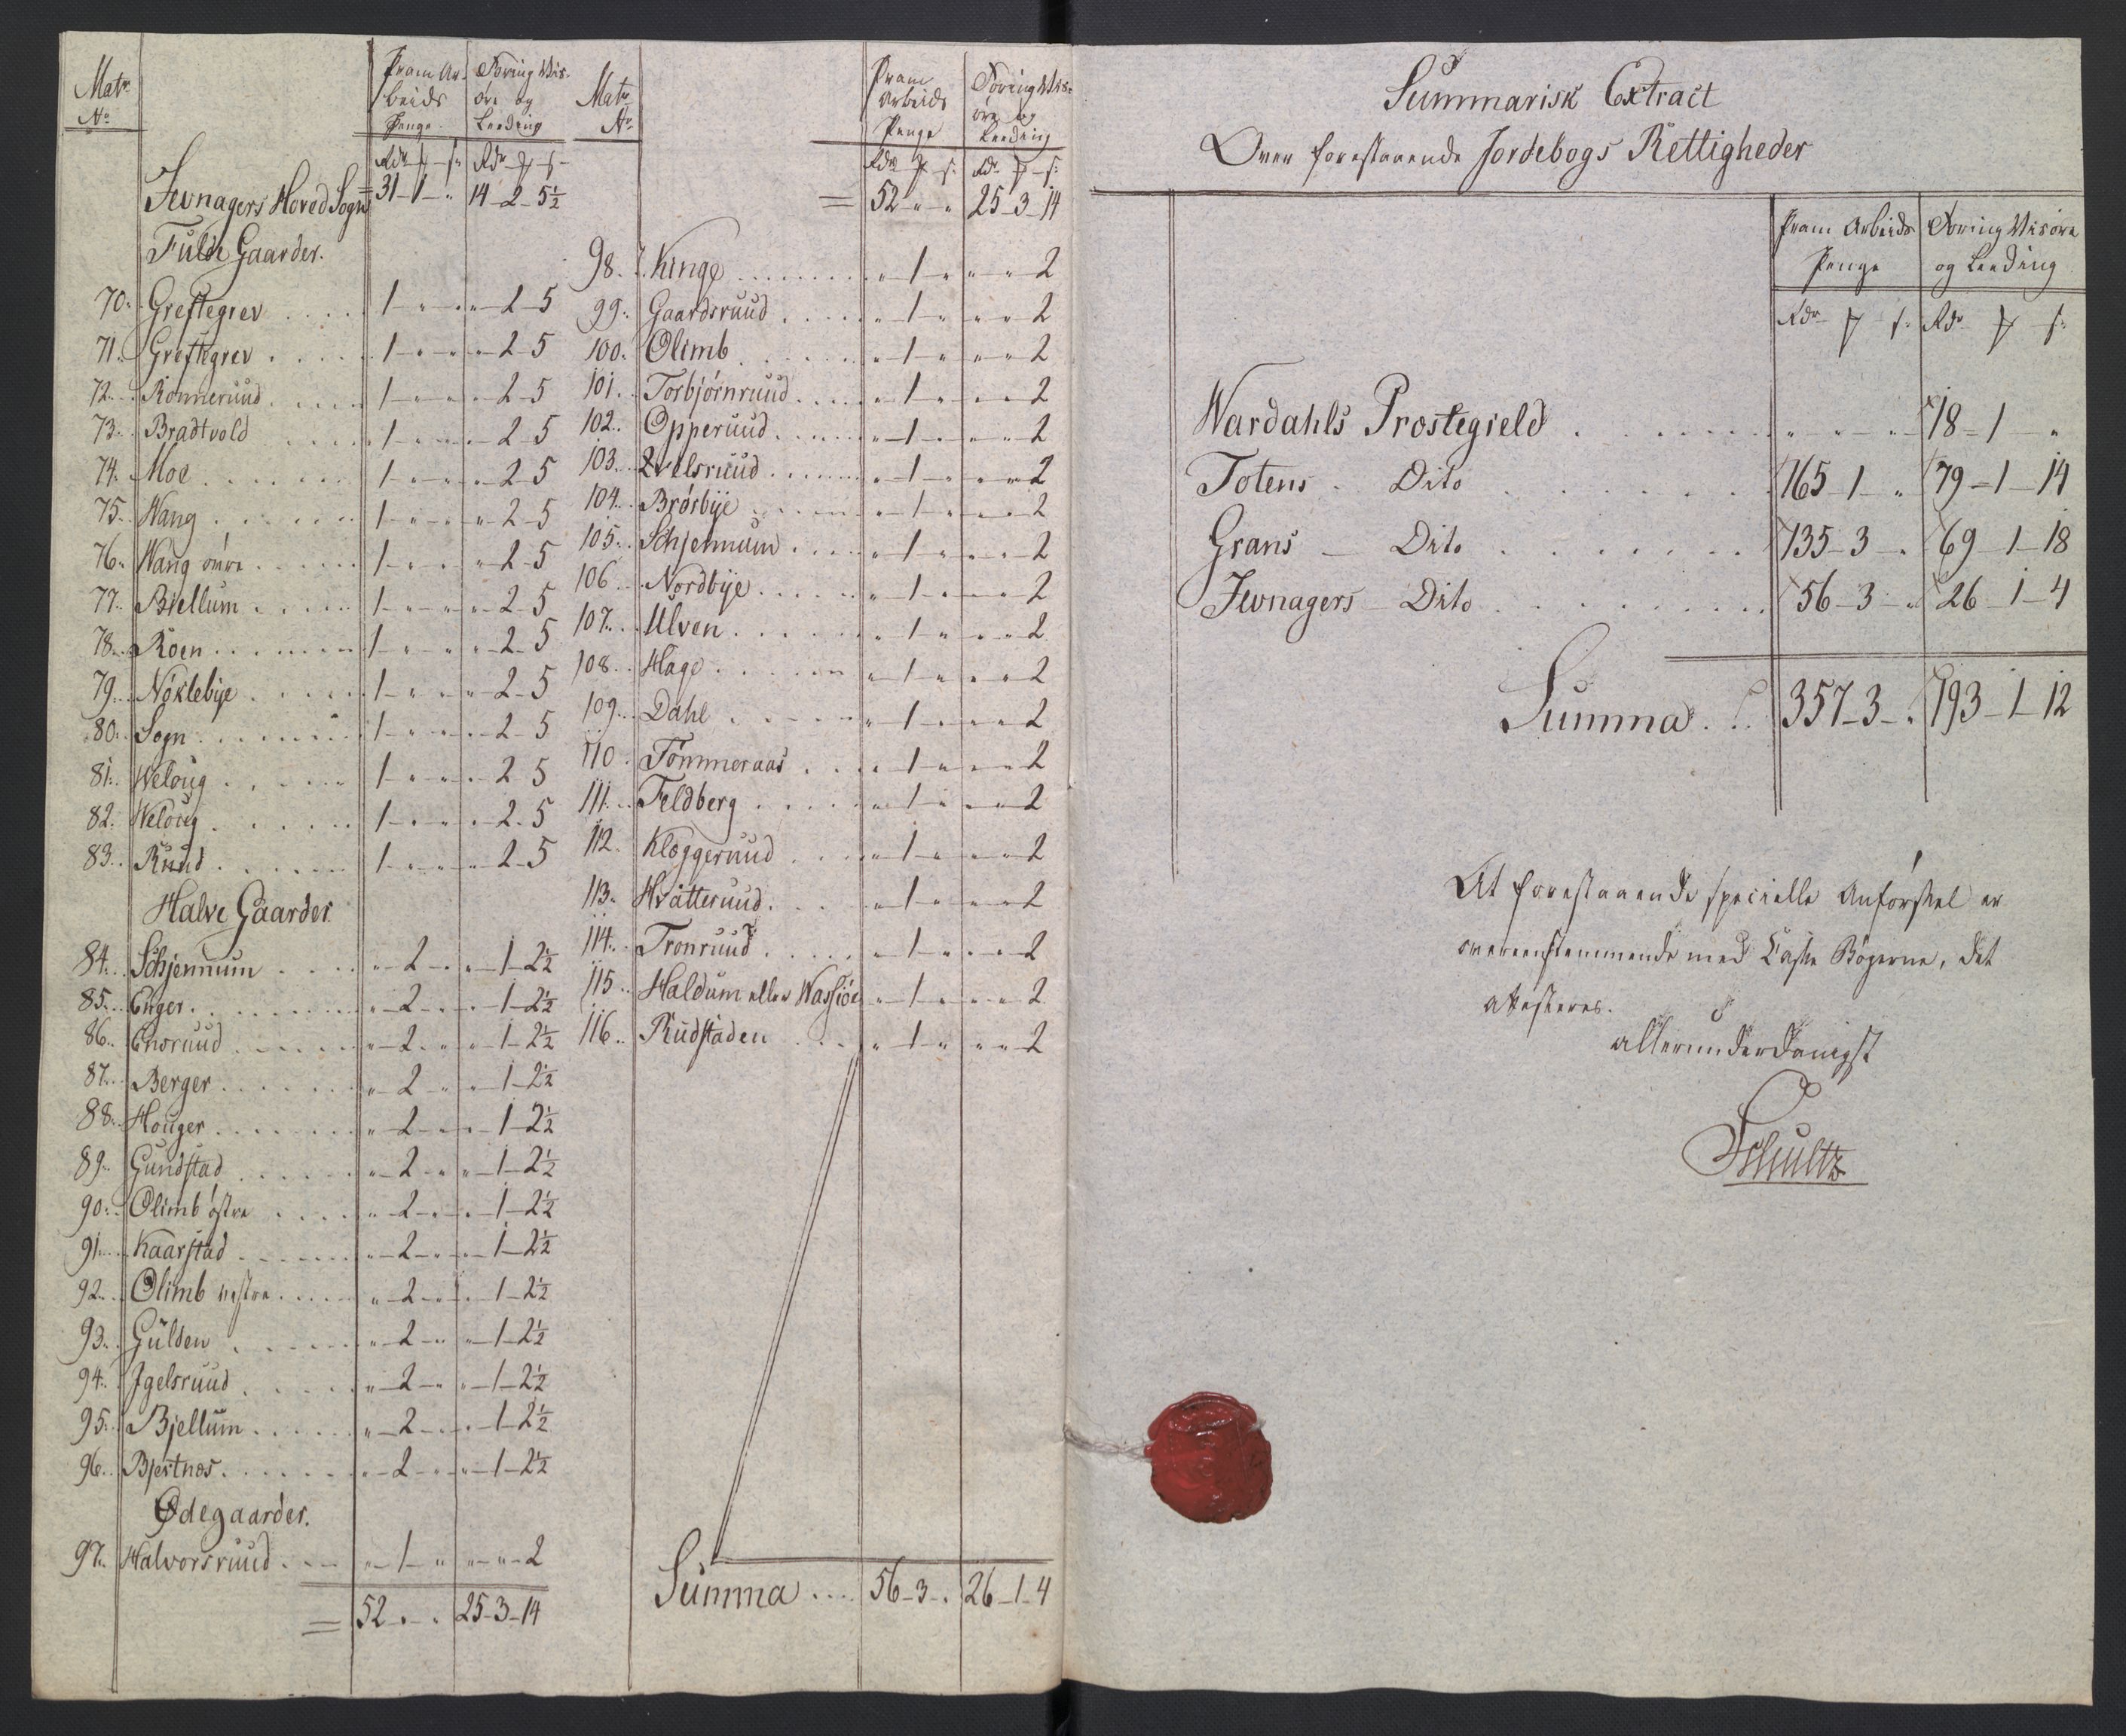 Matr.
No
Pram Ar-
beids
Penge
Foring Vis-
øre og
Leeding
Rdr ƒ s. Rdr ƒ s.
Jevnagers Hoved Sogn = 31 - 1 - „ 14 - 2 - 5½
Fulde Gaarder.
70. Greftegrev . . . . 1 - „ - „ „ - 2 - 5
71. Greftegrev . . . . 1 - „ - „ „ - 2 - 5
72. Rönneruud . . . . 1 - „ - „ „ - 2 - 5
73. Bradtvold . . . . 1 - „ - „ „ - 2 - 5
74. Moe . . . . 1 - „ - „ „ - 2 - 5
75. Wang . . . . 1 - „ - „ „ - 2 - 5
76. Wang øvre . . . . 1 - „ - „ „ - 2 - 5
77. Biellum . . . . 1 - „ - „ „ - 2 - 5
78. Röen . . . . 1 - „ - „ „ - 2 - 5
79. Nöklebÿe . . . . 1 - „ - „ „ - 2 - 5
80. Sogn . . . . 1 - „ - „ „ - 2 - 5
81. Weloug . . . . 1 - „ - „ „ - 2 - 5
82. Weloug . . . . 1 - „ - „ „ - 2 - 5
83. Ruud . . . . 1 - „ - „ „ - 2 - 5
Halve Gaarder
84. Schjennum . . . . „ - 2 - „ „ - 1 - 2½
85. Enger . . . . „ - 2 - „ „ - 1 - 2½
86. Enoruud . . . . „ - 2 - „ „ - 1 - 2½
87. Berger . . . . „ - 2 - „ „ - 1 - 2½
88. Houger . . . . „ - 2 - „ „ - 1 - 2½
89. Gundstad . . . . „ - 2 - „ „ - 1 - 2½
90. Olimb østre . . . . „ - 2 - „ „ - 1 - 2½
91. Kaarstad . . . . „ - 2 - „ „ - 1 - 2½
92. Olimb vestre . . . . „ - 2 - „ „ - 1 - 2½
93. Gülden . . . . „ - 2 - „ „ - 1 - 2½
94. Igelsruud . . . . „ - 2 - „ „ - 1 - 2½
95. Bjellum . . . . „ - 2 - „ „ - 1 - 2½
96. Bjertnæs . . . . „ - 2 - „ „ - 1 - 2½
Ødegaarder.
97. Halvorsruud . . . . „ - 1 - „ „ - „ - 2
= 52 „ - „ 25 - 3 - 14
Matr.
No
Pram
Arbeids
Penge
Foring Vis-
øre og
Leeding
Rdr ƒ s. Rdr ƒ s.
= 52 „ „ 25 - 3 - 14
98. Kinge . . . . „ - 1 - „ „ - „ - 2
99. Gaardsruud . . . . „ - 1 - „ „ - „ - 2
100. Olimb . . . . „ - 1 - „ „ - „ - 2
101. Torbjørnruud . . . . „ - 1 - „ „ - „ - 2
102. Opperuud . . . . „ - 1 - „ „ - „ - 2
103. . . . . „ - 1 - „ „ - „ - 2
104. Brörbÿe . . . . „ - 1 - „ „ - „ - 2
105. Schjennum . . . . „ - 1 - „ „ - „ - 2
106. Nordbÿe . . . . „ - 1 - „ „ - „ - 2
107. Ulven . . . . „ - 1 - „ „ - „ - 2
108. Hage . . . . „ - 1 - „ „ - „ - 2
109. Dahl . . . . „ - 1 - „ „ - „ - 2
110. Tömmeraas . . . . „ - 1 - „ „ - „ - 2
111. Feldberg . . . . „ - 1 - „ „ - „ - 2
112. Kloggeruud . . . . „ - 1 - „ „ - „ - 2
113. Hvatteruud . . . . „ - 1 - „ „ - „ - 2
114. Tronruud . . . . „ - 1 - „ „ - „ - 2
115. Haldum eller Wassiöe „ - 1 - „ „ - „ - 2
116. Rudstaden . . . . „ - 1 - „ „ - „ - 2
Summa . . . . 56 - 3 - „ 26 - 1 - 4
Summarisk Extract
Over forestaaende Jordebogs Rettigheder
Pram Arbeids
Penge
Foring Visøre
og Leeding
Rdr ƒ s. Rdr ƒ s.
Wardahls Prostegield . . . . „ - „ - „ 18 - 1 - „
Totens - Dito . . . . 165 - 1 - „ 79 - 1 - 14
Grans - Dito . . . . 135 - 3 - „ 69 - 1 - 18
Jevnagers - Dito . . . . 56 - 3 - „ 26 - 1 - 4
Summa . . . 357 - 3 - „ 193 - 1 - 12
At forestaaende specielle Anförsel er
overeensstemmende med Casse Bøgerne, det
attesteres.
allerunderdanigst
Schultz